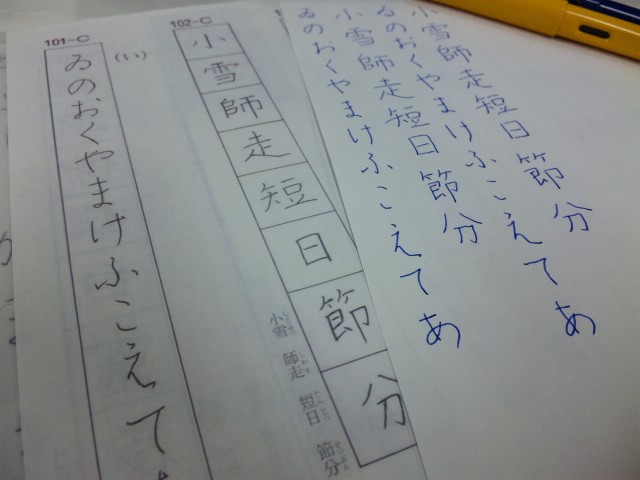 小雪師走短日節分
ゐのおくやまけふこえてあ
小雪師走短日節分
ゐのおくやまけふこえてあ
102-C
小雪師走短日節分
小雪 師走 短日 節分
101-C
(い)
ゐのおくやまけふこえて